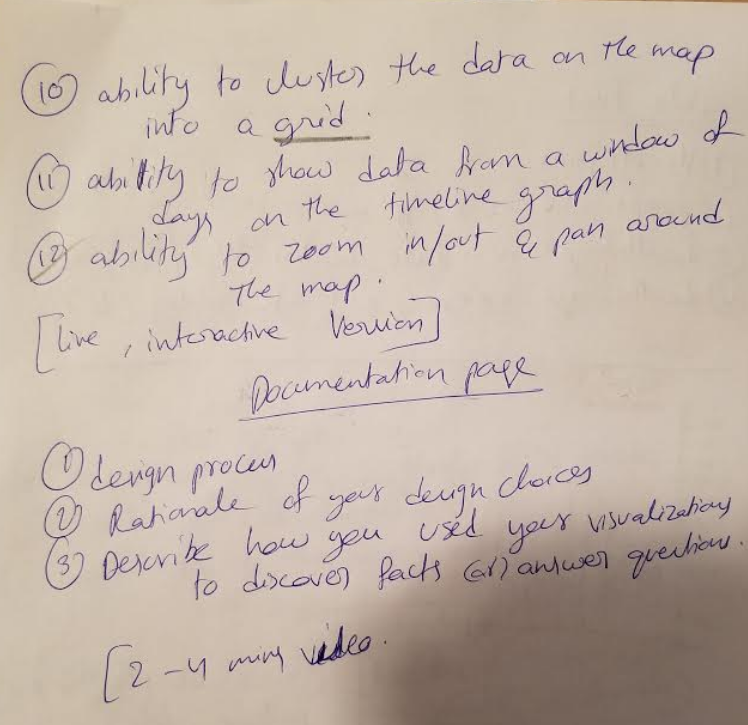 (10) ability to cluster the data on the map
into a grid.
(11) ability to show data from a window of
days on the timeline graph.
(12) ability to zoom in/out & pan around
The map.
[live, interactive Version]
Documentation page
(1) design process
(2) Rationale of your design choices
(3) Describe how you used your visualizations
to discover facts (or) answer questions.
[2-4 mins video.